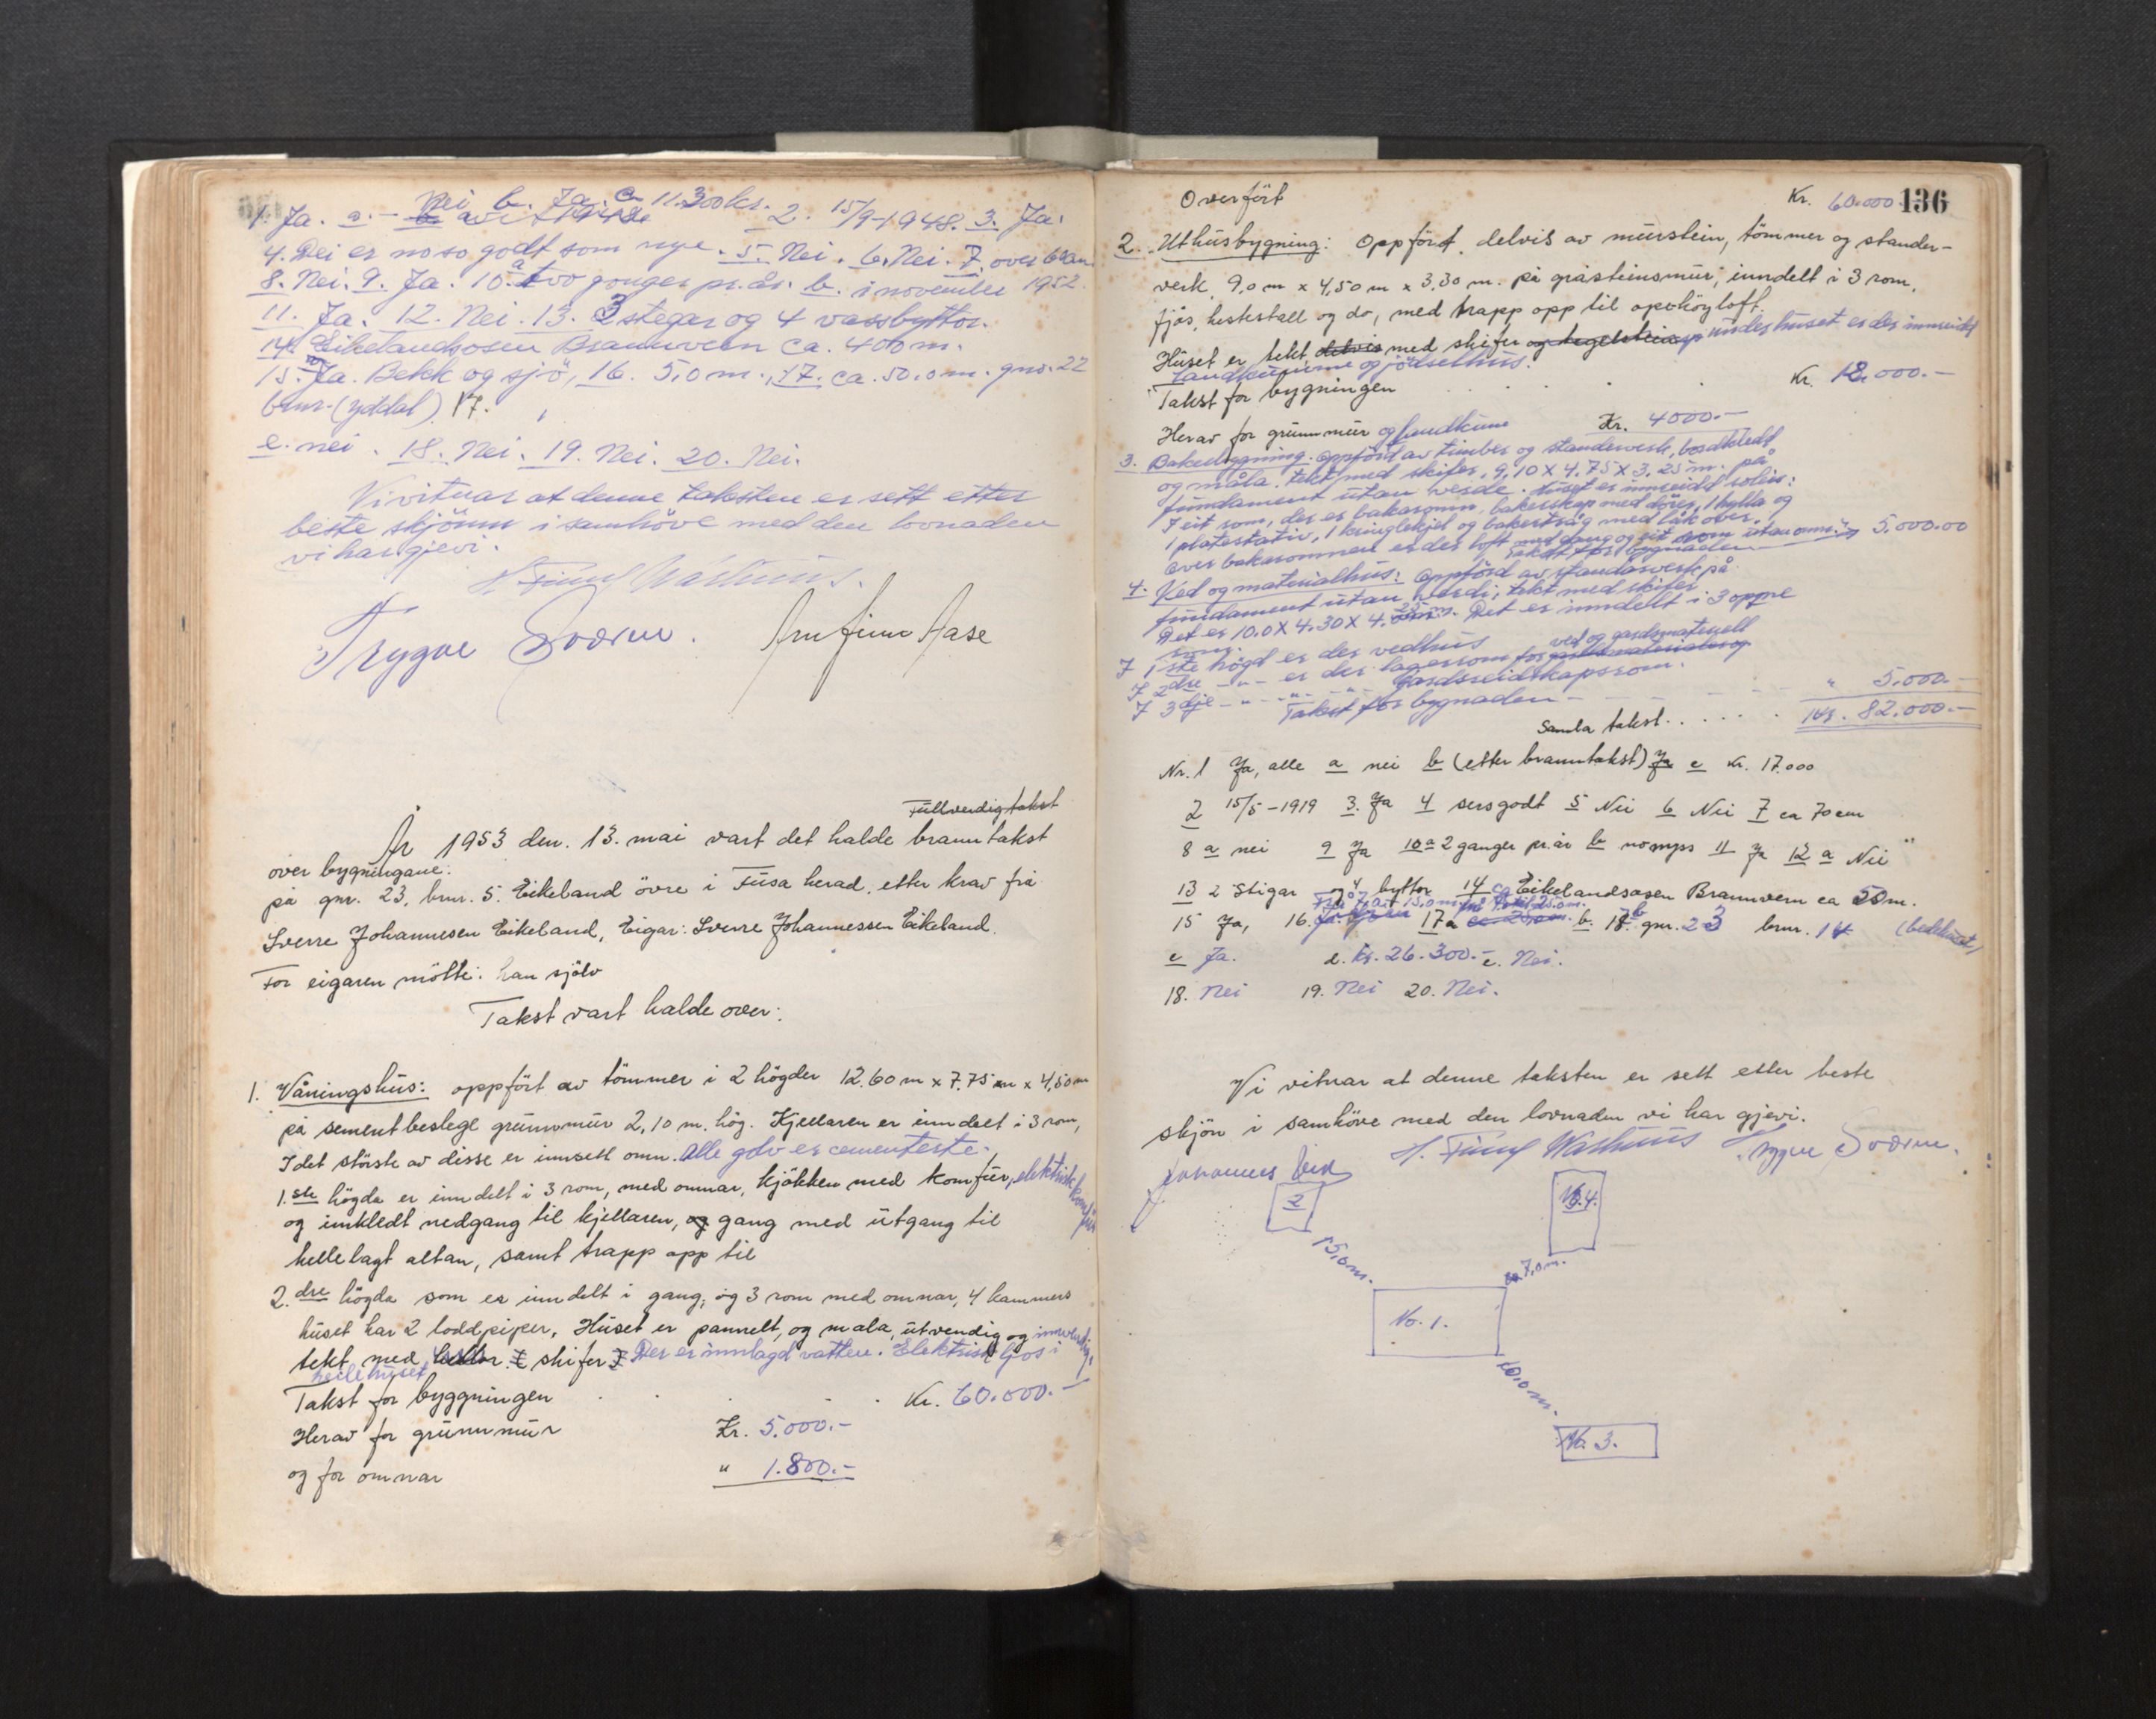 1. Ja. a. – Nei b. Ja. c. 11.300 kr. 2. 15/9-1948. 3. Ja.
4. Dei er noso godt som nye. 5. Nei. 6. Nei. 7. over 60 cm
8. Nei. 9. Ja. 10. a two gonger pr. år. b. i november 1952.
11. Ja. 12. Nei. 13. 3 stegar og 4 vassbyttor.
14. Eikelandsosen Brannvern ca. 400 m.
15. Ja. Bekk og sjö, 16. 5,0 m., 17. ca. 50,0 m. gnr. 22
bnr. (yddal) 17.
e. nei. 18. Nei. 19. Nei. 20. Nei.
Vi vitnar at denne taksten er sett etter
beste skjönn i samhöve med den lovnaden
vi har gjevi.
Trygve Arnfinn Aase
Fullverdig takst
År 1953 den. 13. mai vart det halde branntakst
over bygningane:
på gnr. 23, brnr. 5. Eikeland övre i Fusa herad, etter krav frå
Sverre Johannesen Eikeland, Eigar: Sverre Johannessen Eikeland.
For eigaren mötte: han sjölv
Takst vart halde over:
1. Våningshus: oppfört av tömmer i 2 högder 12.60 m x 7.75 m x 4,50 m
på sement beslegt grunnmur 2,10 m. hög. Kjellaren er inndelt i 3 rom,
I det störste av disse er innsett omn. Alle golv er cementerte.
1. ste högda er inndelt i 3 rom, med omnar, kjökken med komfur, elektrisk komfur
og innkledt nedgang til kjellaren, og gang med utgang til
hellelagt altan, samt trapp opp til
2. dre högda som er inndelt i gang, og 3 rom med omnar, 4 kammers
huset har 2 loddpiper, Huset er pannelt, og mala, utvendig og innvendig,
tekt med skifer Der er innlagd vatten. Elektrisk ljos i
heile huset
Takst for byggningen . . . Kr. 60.000.–
Herav for grunnmur Kr. 5.000.–
og for omnar " 1.800.–
Overfört Kr. 60.000 136
2. Uthusbygning: Oppfört, delvis av murstein, tömmer og stander-
verk, 9,0 m x 4,50 m x 3,30 m. på gråsteinsmur, inndelt i 3 rom,
fjös, hestestall og do, med trapp opp til opehögloft.
Huset er tekt delvis med skifer og tegelstein under huset er der innreidd
landkum og gjödselhus.
Takst for bygningen . . . Kr. 12.000.–
Herav for grunnmur og landkum Kr. 4000.–
3. Bakeribygning. oppförd av timber og standerverk, bordkledt
og måla. tekt med skifer, 9,10 X 4.75 X 3,25 m. på
fundament utan verde. Huset er innreidd soleis:
I eit rom, der er bakaromn, bakerskap med dörer, 1 hylla og
1 platestativ, 1 kringlekjel og bakertråg med låk over.
Over bakarommen er der loft med gang og eit rom utan omn.
Takst for bygnaden 5.000.00
4. Ved og materialhus: Oppförd av standarverk på
fundament utan verdi, tekt med skifer
Det er 10.0 X 4.30 X 4.25 m. Det er inndellt i 3 oppne
rom.
I 1ste högd er der vedhus
ved og gardsmateriell
I 2dre –"– er der lagerrom for
I 3dje –"– –"– Gardsreidskapsrom.
Takst for bygnaden – " 5.000.–
Samla takst . . . . . Kr. 82.000.–
Nr. 1 Ja, alle a nei b (etter branntakst) Ja c Kr. 17.000
2 15/5 – 1919 3. Ja 4 sersgodt 5 Nei 6 Nei 7 ca 70 cm
8 a nei 9 Ja 10 a 2 ganger pr. år b no nyss 11 Ja 12 a Nei
13 2 Stigar og 4 byttor 14 ca Eikelandsosen Brannvern ca 50 m.
15 Ja, 16. 17 a b. 18. b gnr. 23 bnr. 14 (bedehuset)
c Ja. d. Kr. 26.300.– e. Nei.
18. Nei 19. Nei 20. Nei.
Vi vitnar at denne taksten er sett etter beste
skjön i samhöve med den lovnaden vi har gjevi.
Johannes
2
No. 4.
15,0 m.
ca. 7,0 m.
No. 1.
10,0 m.
No. 3.